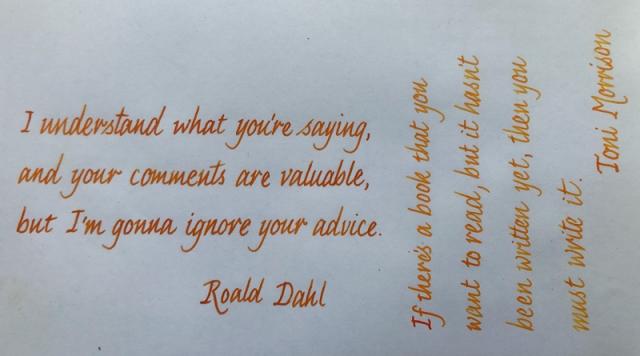 I understand what you're saying,
and your comments are valuable,
but I'm gonna ignore your advice.
Roald Dahl
If there's a book that you
want to read, but it hasn't
been written yet, then you
must write it.
Toni Morrison